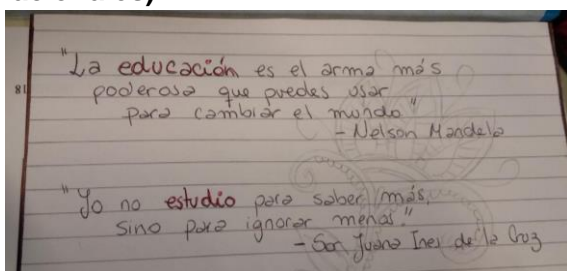 "La educación es el arma más
poderosa que puedes usar
para cambiar el mundo"
- Nelson Mandela
"Yo no estudio para saber más,
sino para ignorar menos."
- Sor Juana Ines de la Cruz
81